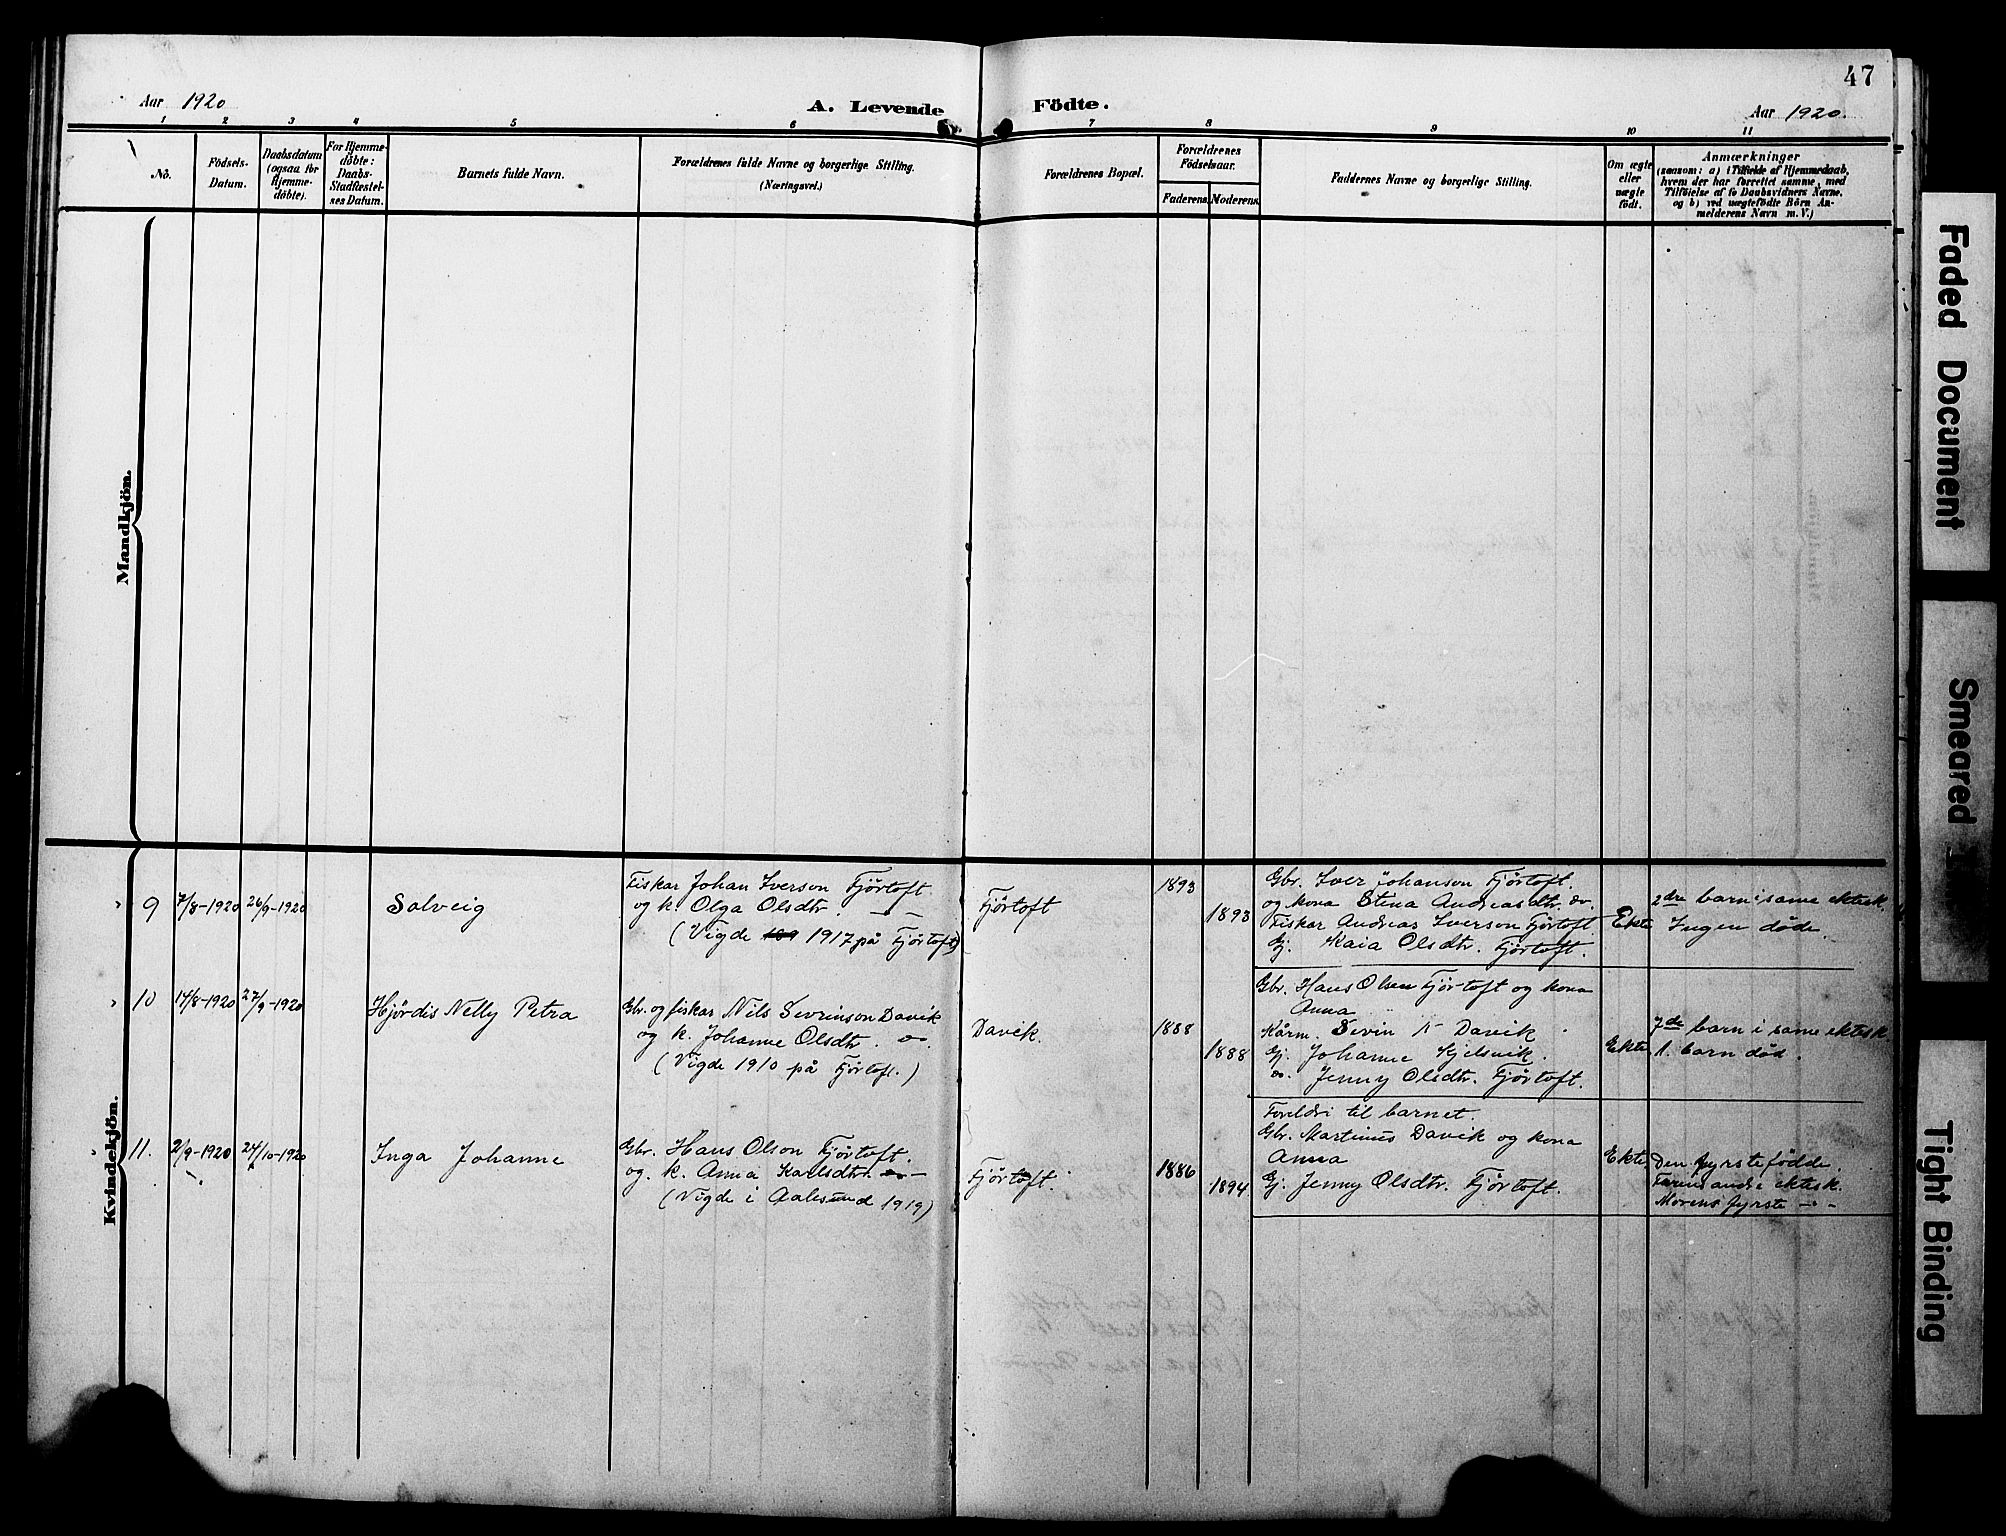 47
Aar 1920
A. Levende Födte.
Aar 1920.
1 2 3 4 5 6 7 8 9 10 11
No.
Födsels-
Datum.
Daabsdatum
(ogsaa for
Hjemme-
døbte).
For Hjemme-
døbte:
Daabs-
Stadfæstel-
ses Datum.
Barnets fulde Navn.
Forældrenes fulde Navne og borgerlige Stilling.
(Næringsvei.)
Forældrenes Bopæl.
Forældrenes
Födselsaar.
Faderens.
Moderens.
Faddernes Navne og borgerlige Stilling.
Om ægte
eller
uægte
födt.
Anmærkninger
(saasom: a) i Tilfælde af Hjemmedaab,
hvem der har forrettet samme, med
Tilföielse af to Daabsvidners Navne,
og b) ved uægtefödte Börn An-
melderens Navn m. V.)
Mandkjön.
Kvindekjön.
9
7/8-1920
26/9-1920
Solveig
Fiskar Johan Iverson Fjörtoft
og k. Olga Olsdtr. — -
(Vigde 1917 på Fjörtoft)
Fjörtoft
1893
1893
Gbr. Iver Johanson Fjörtoft.
og kona Stina Andreasdtr. do.
Fiskar Andreas Iverson Fjörtoft
Gj. Kaia Olsdtr. Fjörtoft.
Ekte
2dre barn i same ektesk.
Ingen døde.
10
14/8-1920
27/9-1920
Hjördis Nelly Petra
Gbr. og fiskar Nils Sevrinson Davik
og k. Johanne Olsdtr. do.
(Vigde 1910 på Fjörtoft.)
Davik.
1888
1888
Gbr. Hans Olsen Fjörtoft og kona
Anna
Kårm. Sevrin Davik
Gj. Johanne
do. Jenny Olsdtr. Fjörtoft.
Ekte
7de barn i same ektesk.
1. barn död.
11.
2/9-1920
24/10-1920
Inga Johanne
Gbr. Hans Olson Fjörtoft.
og. k. Anna Karlsdtr. do. -
(Vigde i Aalesund 1919)
Fjörtoft.
1886
1894
Foreldri til barnet.
Gbr. Martinus Davik og kona
Anna
Gj. Jenny Olsdtr. Fjörtoft.
Ekte
Den fyrstefödde.
Farens andre ektesk.
Morens fyrste — -
Faded Document
Smeared
Tight Binding